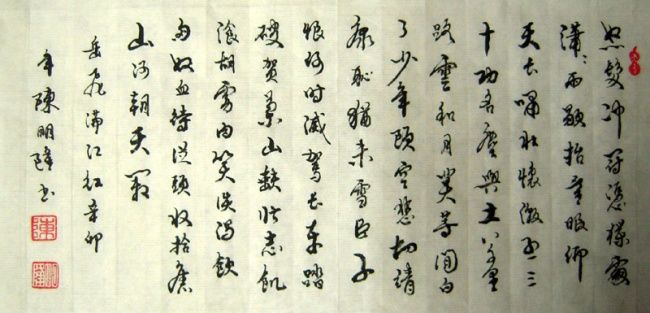 怒髮冲冠憑欄處
潇々雨歇抬望眼仰
天長嘯壯懷激烈三
十功名塵與土八千里
路雲和月莫等閒白
了少年頭空悲切靖
康恥猶未雪臣子
恨何時滅駕長車踏
破賀蘭山缺壯志飢
飡胡虜肉笑談渴飲
匈奴血待從頭收拾舊
山河朝天闕
岳飛滿江紅辛卯
年陳明書